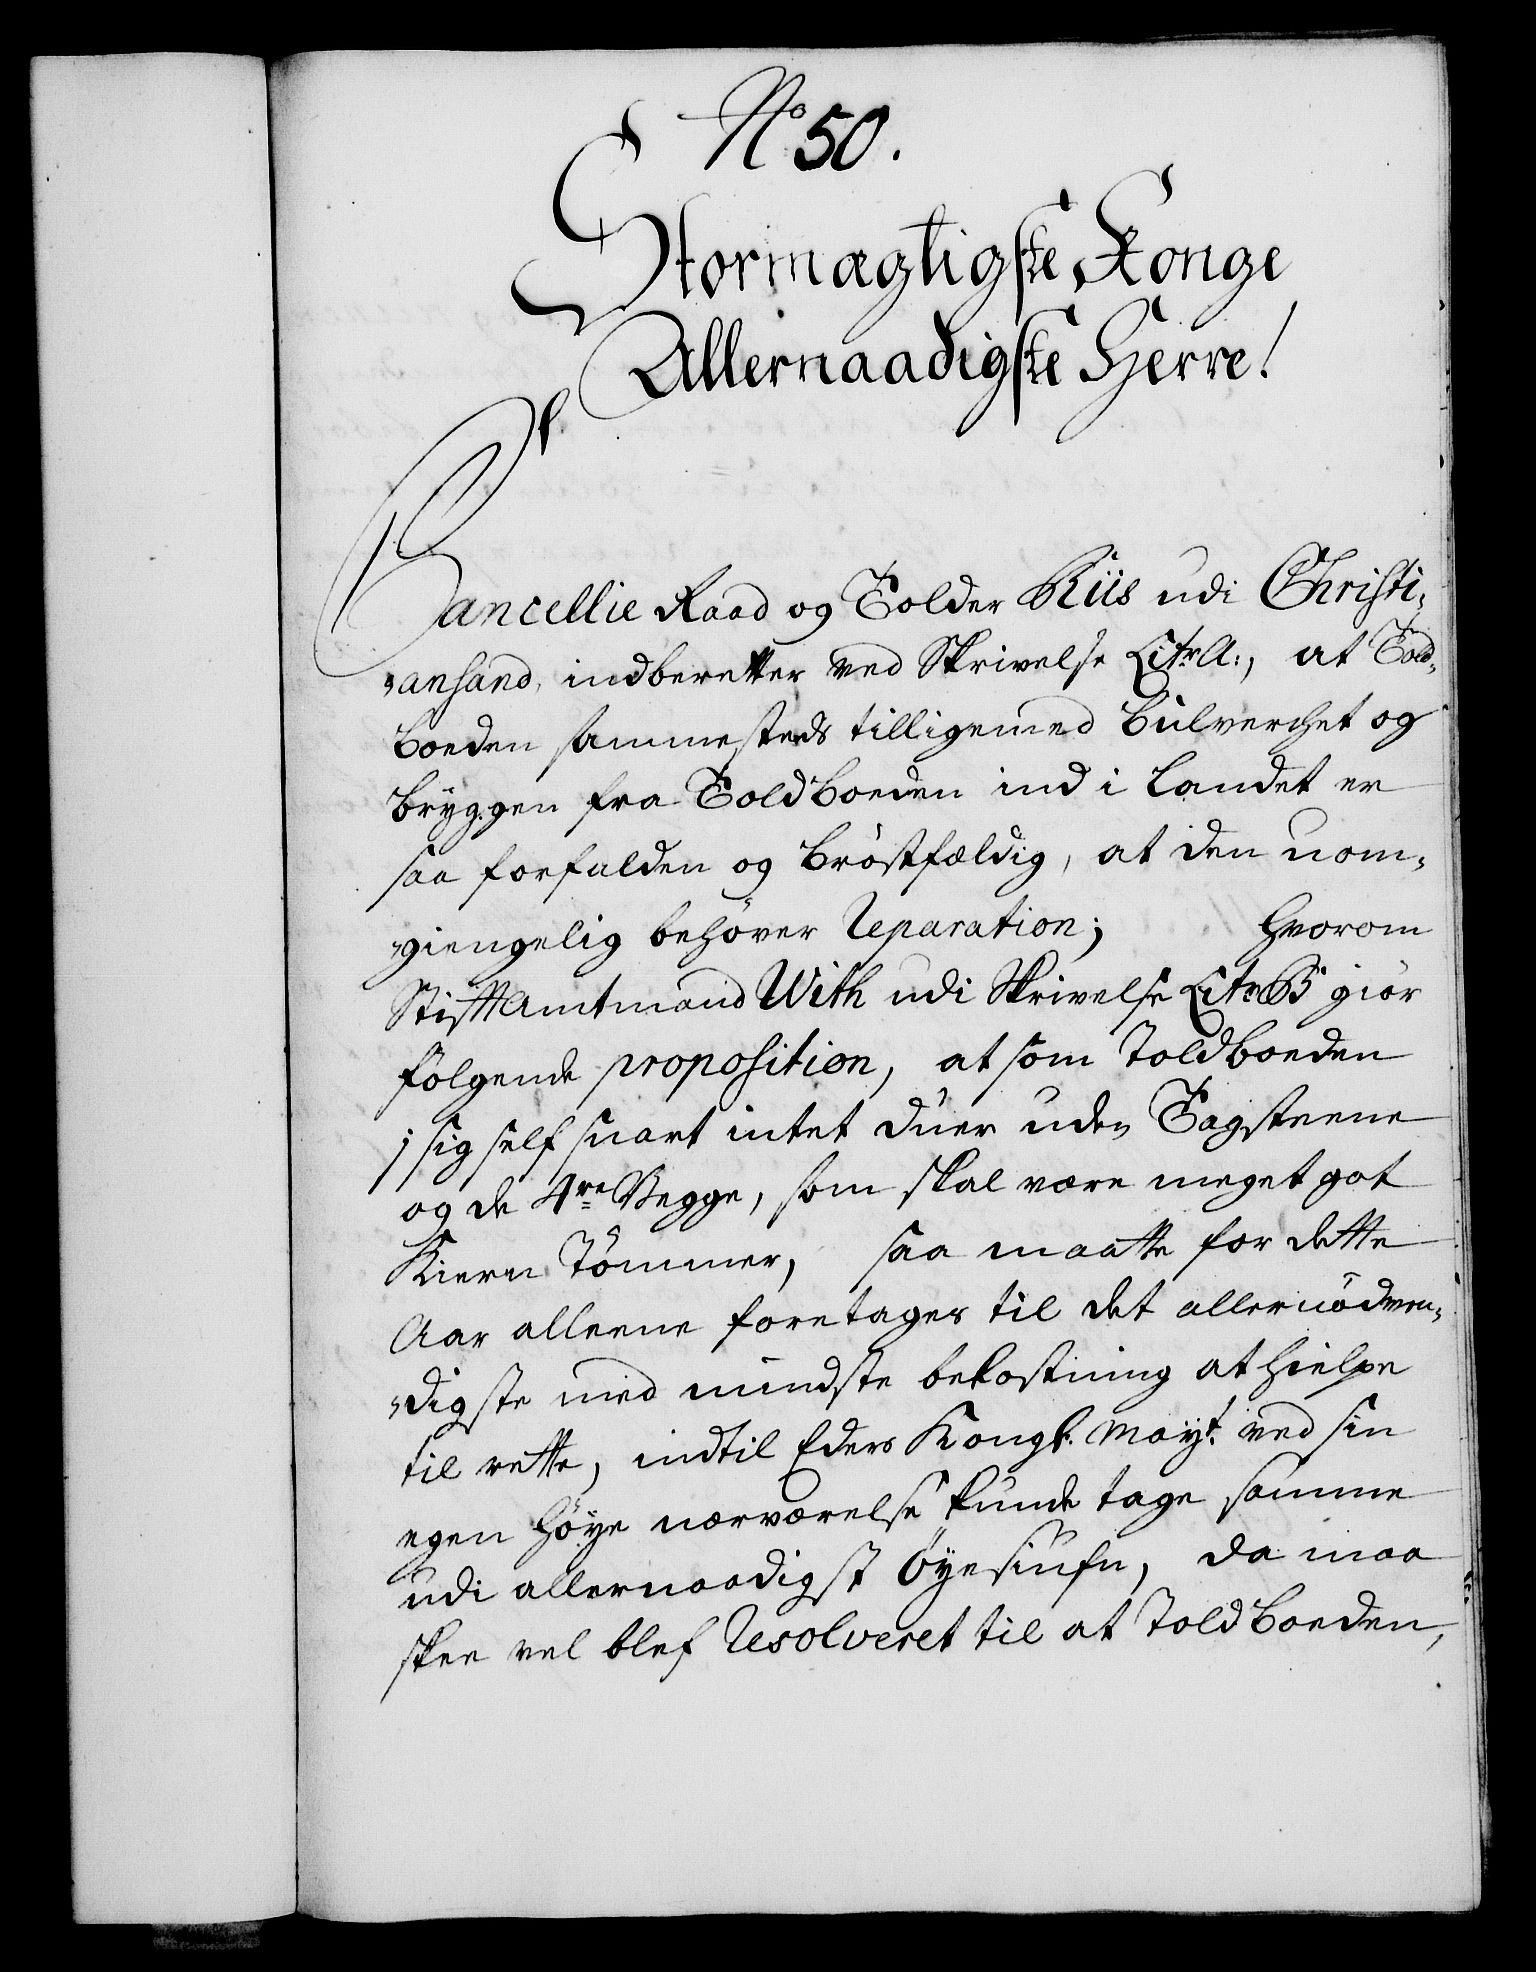 No 50.
Stormægtigste Konge
Allernaadigste Herre!
Cancellie Raad og Tolder Riis udi Christi-
ansand, indberetter ved Skrivelse Litr A:, at Told-
boeden sammesteds tilligemed Bulverchet og
Bryggen fra Toldboeden ind i Landet er
saa forfalden og Bröstfældig, at den uom-
giengelig behöver Reparation; Hvorom
Stiftamtmand With udi Skrivelse Litr B giör
fölgende proposition, at som Toldboeden
j sig self snart intet duer uden Tagsteene
og de 4re Vegge, som skal være meget got
Kierne Tömmer, saa maatte for dette
Aar alleene foretages til det allernödven-
digste med mindste bekostning at hielpe
til rette, indtil Eders Kongl. Mayt. ved sin
egen höye nærværelse kunde tage samme
udi allernaadigst Öyesiufn, da maa
skee vel blef Resolveret til at Toldboeden,